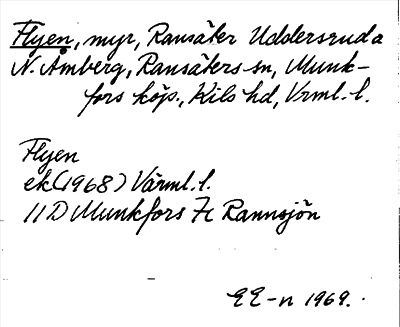 Flyen, myr, Ransäter Uddersrud a
N. Åmberg, Ransäters sn, Munk-
fors köp., Kils hd, Vrml. l.
Flyen
ek (1968) Värml. l.
11 D Munkfors 7c Rannsjön
EE-n 1969.